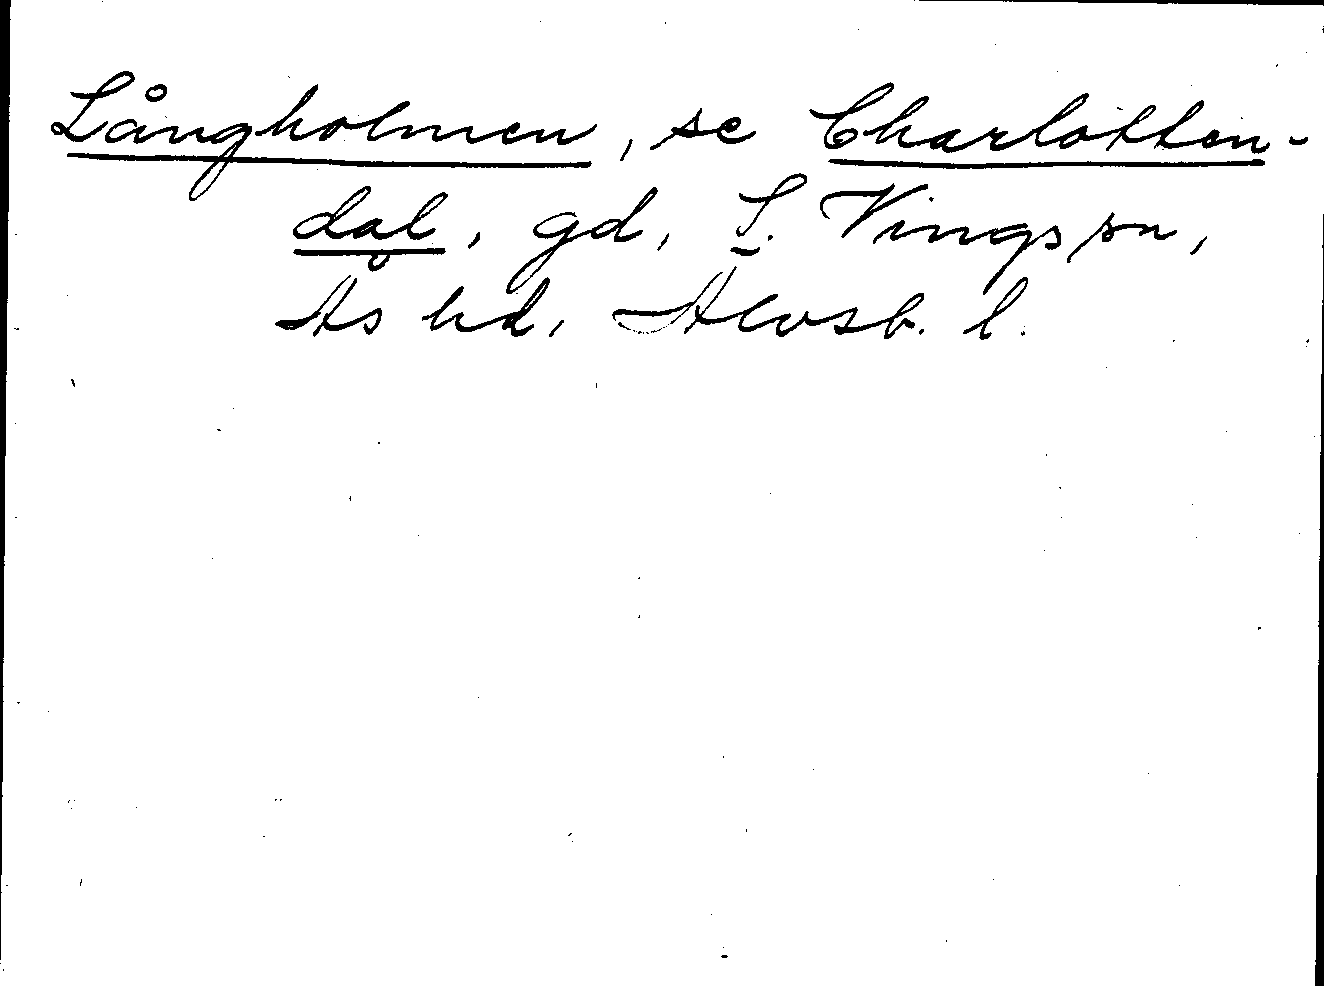 Långholmen, se Charlotten-
dal, gd, S. Vings sn,
Ås hd, Älvsb. l.